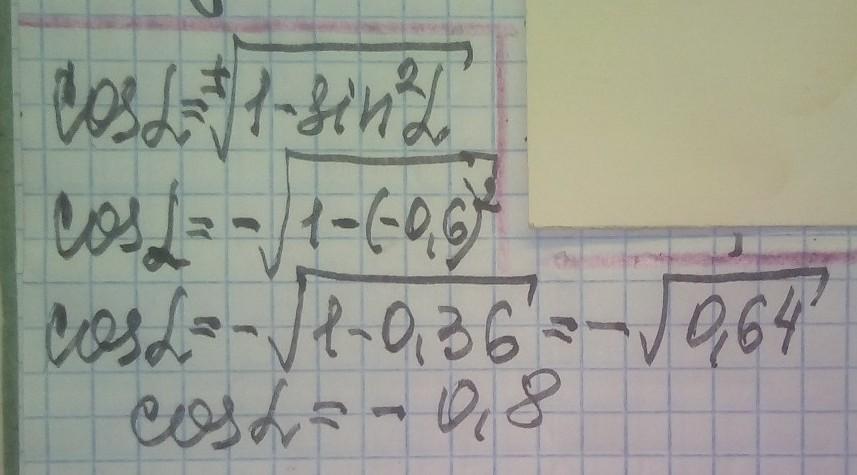 cosα=±√1-sin²α
cosα=-√1-(-0,6)²
cosα=-√1-0,36=-√0,64
cosα=-0,8